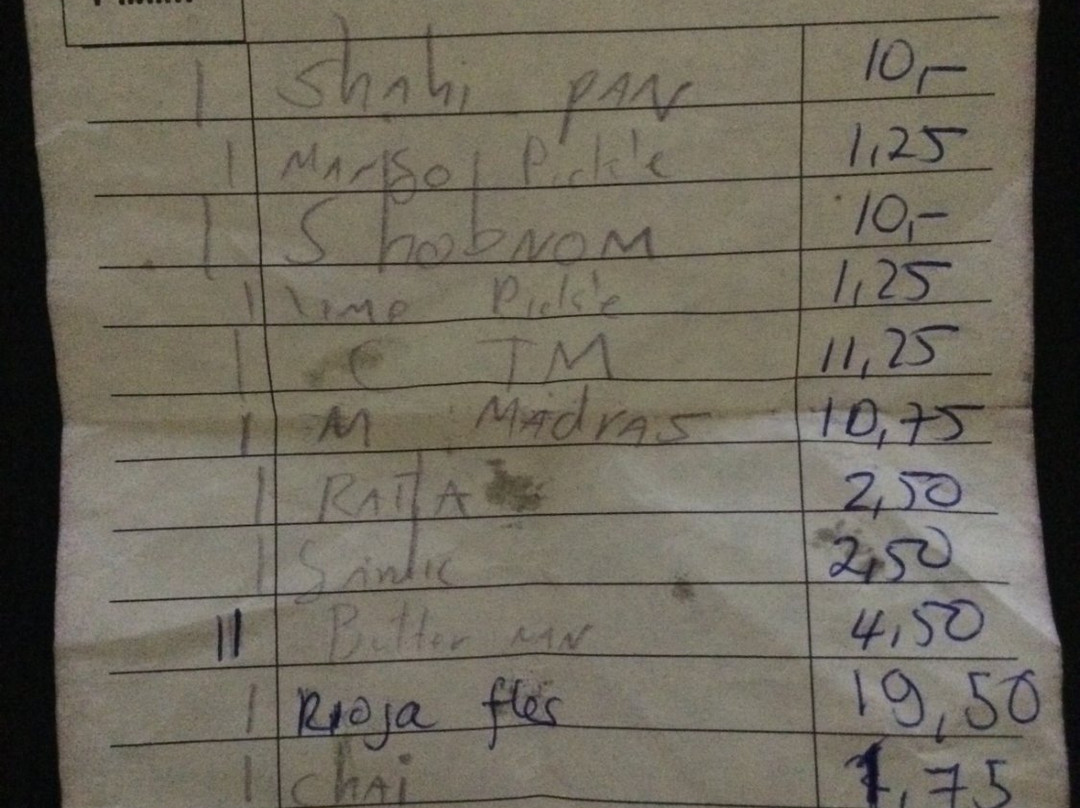 1 Shahi PAN 10,-
1 MANgo Pickle 1,25
1 ShobNOM 10,-
1 lime Pickle 1,25
1 C TM 11,25
1 M Madras 10,75
1 RAITA 2,50
1 2,50
11 Butter NAN 4,50
1 Rioja fles 19,50
1 chai 1,75